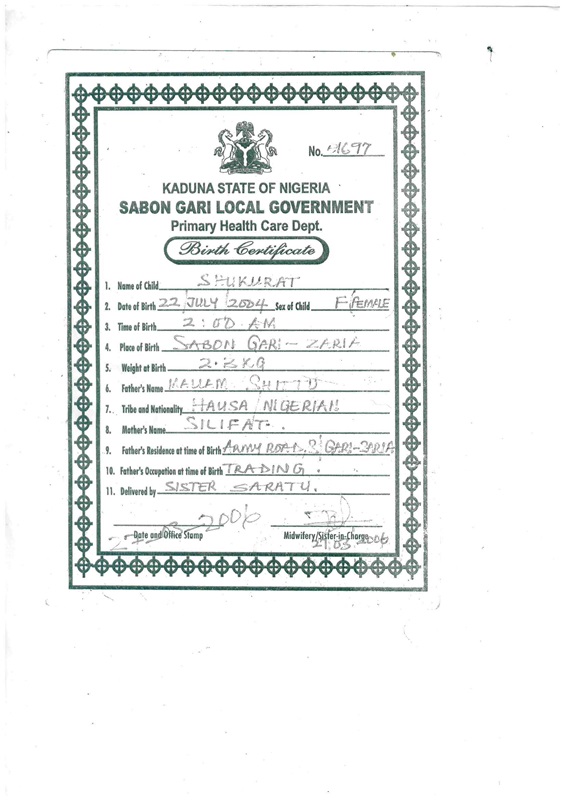 No. 1697
KADUNA STATE OF NIGERIA
SABON GARI LOCAL GOVERNMENT
Primary Health Care Dept.
Birth Certificate
1. Name of Child SHUKURAT
2. Date of Birth 22 JULY 2004 Sex of Child F FEMALE
3. Time of Birth 2:00 AM
4. Place of Birth SABON GARI - ZARIA
5. Weight at Birth KG
6. Father's Name MALLAM SHITTU
7. Tribe and Nationality HAUSA NIGERIAN
8. Mother's Name SILIFAT.
9. Father's Residence at time of Birth ARMY ROAD, S/GARI-ZARIA
10. Father's Occupation at time of Birth TRADING.
11. Delivered by SISTER SARATU.
2006
Date and Office Stamp Midwifery/Sister-in-Charge
03 2006